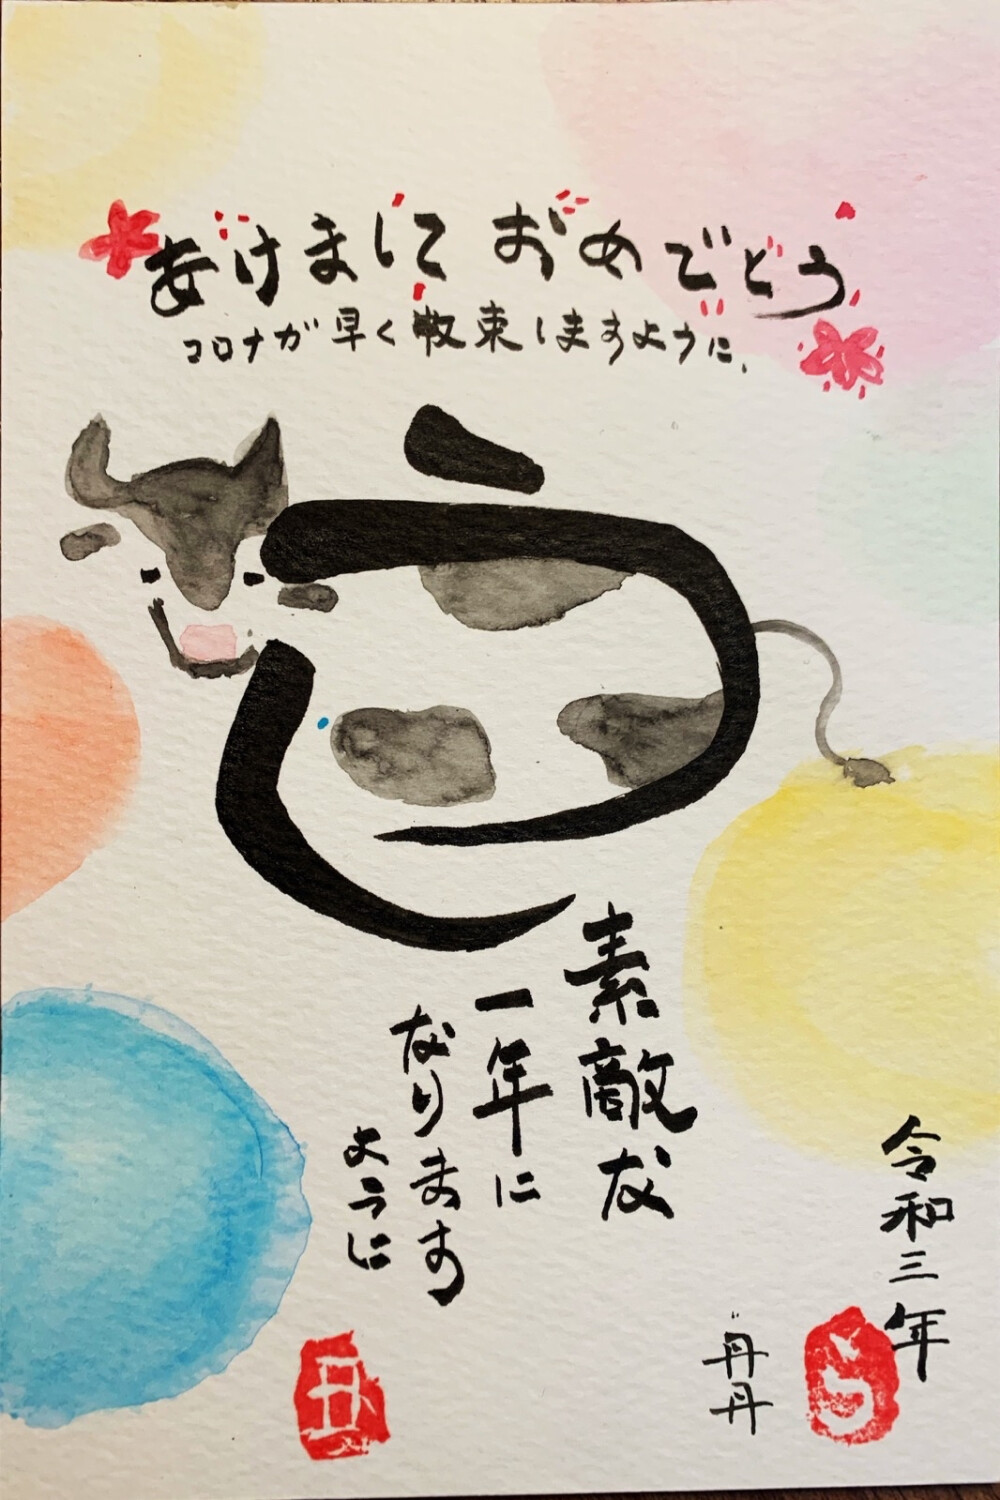 あけまして おめでとう
コロナが早く収束しますように、
うし
素敵な
一年に
なります
ように
令和三年
丹丹
丑
うし